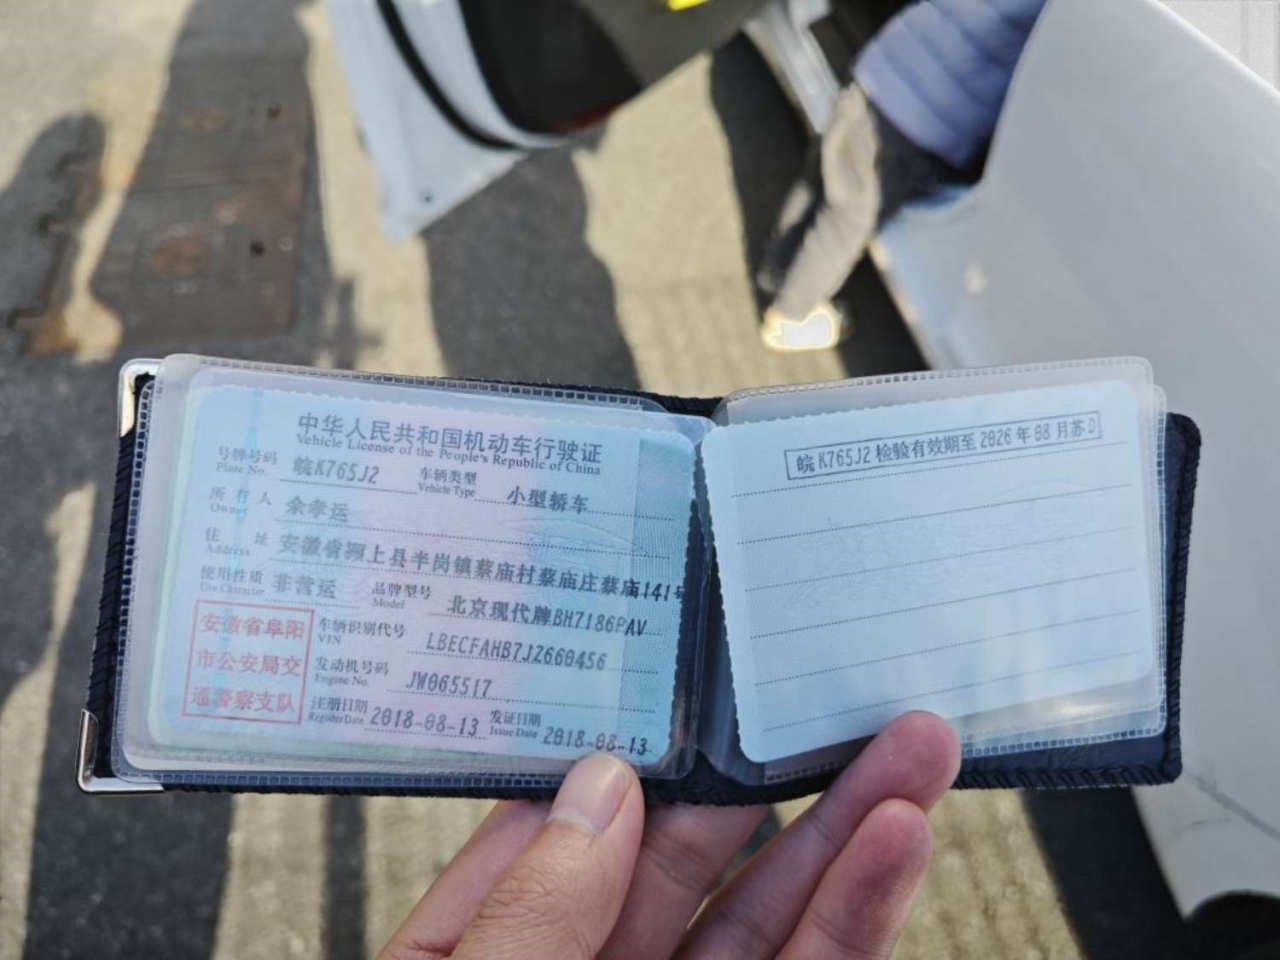 中华人民共和国机动车行驶证
Vehicle License of the People's Republic of China
号牌号码 皖K765J2 车辆类型 小型轿车
Plate No. Vehicle Type
所有人 余孝运
Owner
住址 安徽省颍上县半岗镇蔡庙村蔡庙庄蔡庙141号
Address
使用性质 非营运 品牌型号 北京现代牌BH7186PAV
Use Character Model
安徽省阜阳
市公安局交
通警察支队
车辆识别代号 LBECFAHB7JZ660456
VIN
发动机号码 JW065517
Engine No.
注册日期 2018-08-13 发证日期 2018-08-13
Register Date Issue Date
皖K765J2检验有效期至2026年08月苏D